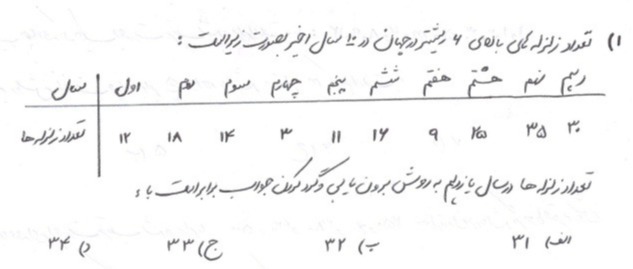 ۱) تعداد زلزله های بالای ۶ ریشتر در جهان در ۱۰ سال اخیر بصورت زیر است :
سال اول دوم سوم چهارم پنجم ششم هفتم هشتم نهم دهم
تعداد زلزله ها ۱۲ ۱۸ ۱۴ ۳ ۱۱ ۱۶ ۹ ۲۵ ۳۵ ۳۰
تعداد زلزله ها در سال یازدهم به روش برون یابی و گرد کردن جواب برابر است با :
الف) ۳۱ ب) ۳۲ ج) ۳۳ د) ۳۴